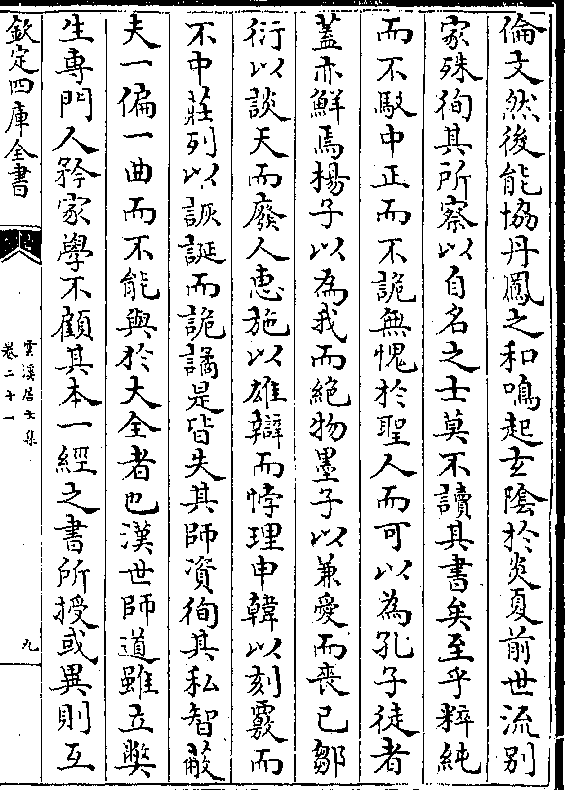 倫文然後能協丹鳳之和鳴起玄陰於炎夏前世流别
家殊徇其所察以自名之士莫不讀其書矣至乎粹純
而不駁中正而不詭無愧於聖人而可以為孔子徒者
蓋亦鮮焉楊子以為我而絕物墨子以兼愛而喪已鄒
衍以談天而廢人惠施以雄辯而悖理申韓以刻覈而
不中莊列以詼誕而詭譎是皆失其師資徇其私智蔽
夫一偏一曲而不能與於大全者也漢世師道雖立弊
生專門人矜家學不顧其本一經之書所授或異則互
欽定四庫全書
雲溪居士集
卷二十一
九